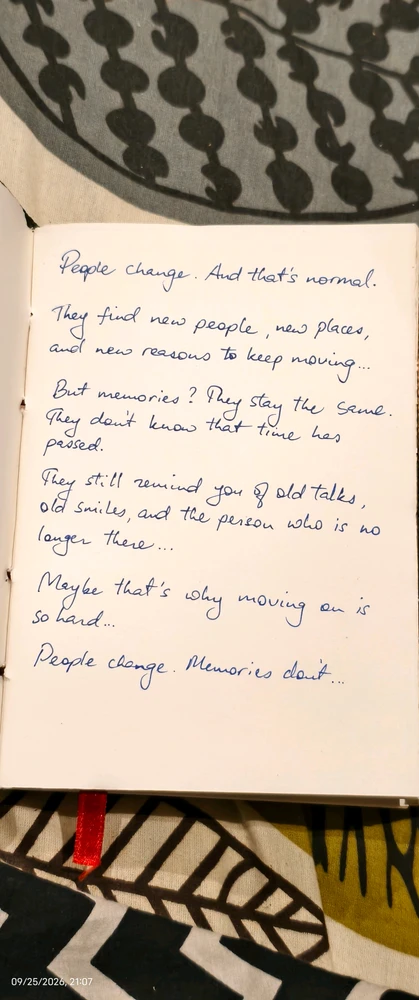 People change. And that's normal.
They find new people, new places,
and new reasons to keep moving...
But memories? They stay the same.
They don't know that time has
passed.
They still remind you of old talks,
old smiles, and the person who is no
longer there...
Maybe that's why moving on is
so hard...
People change. Memories don't...
09/25/2026, 21:07